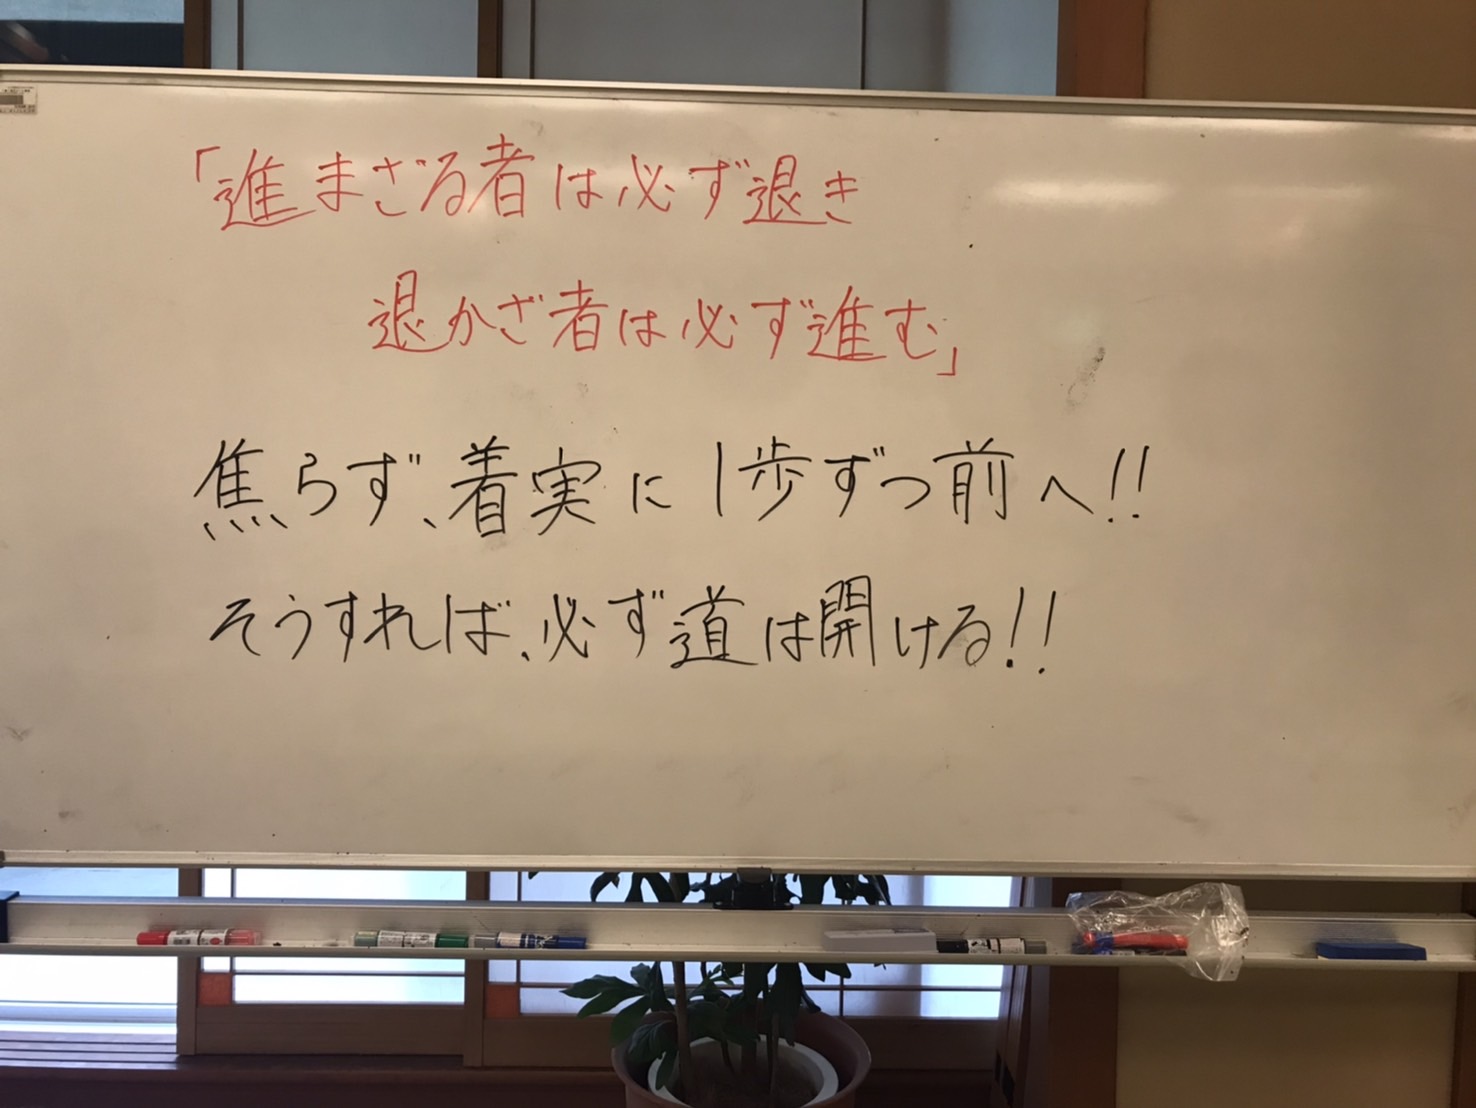 「進まざる者は必ず退き
退かざ者は必ず進む」
焦らず、着実に1歩ずつ前へ!!
そうすれば、必ず道は開ける!!